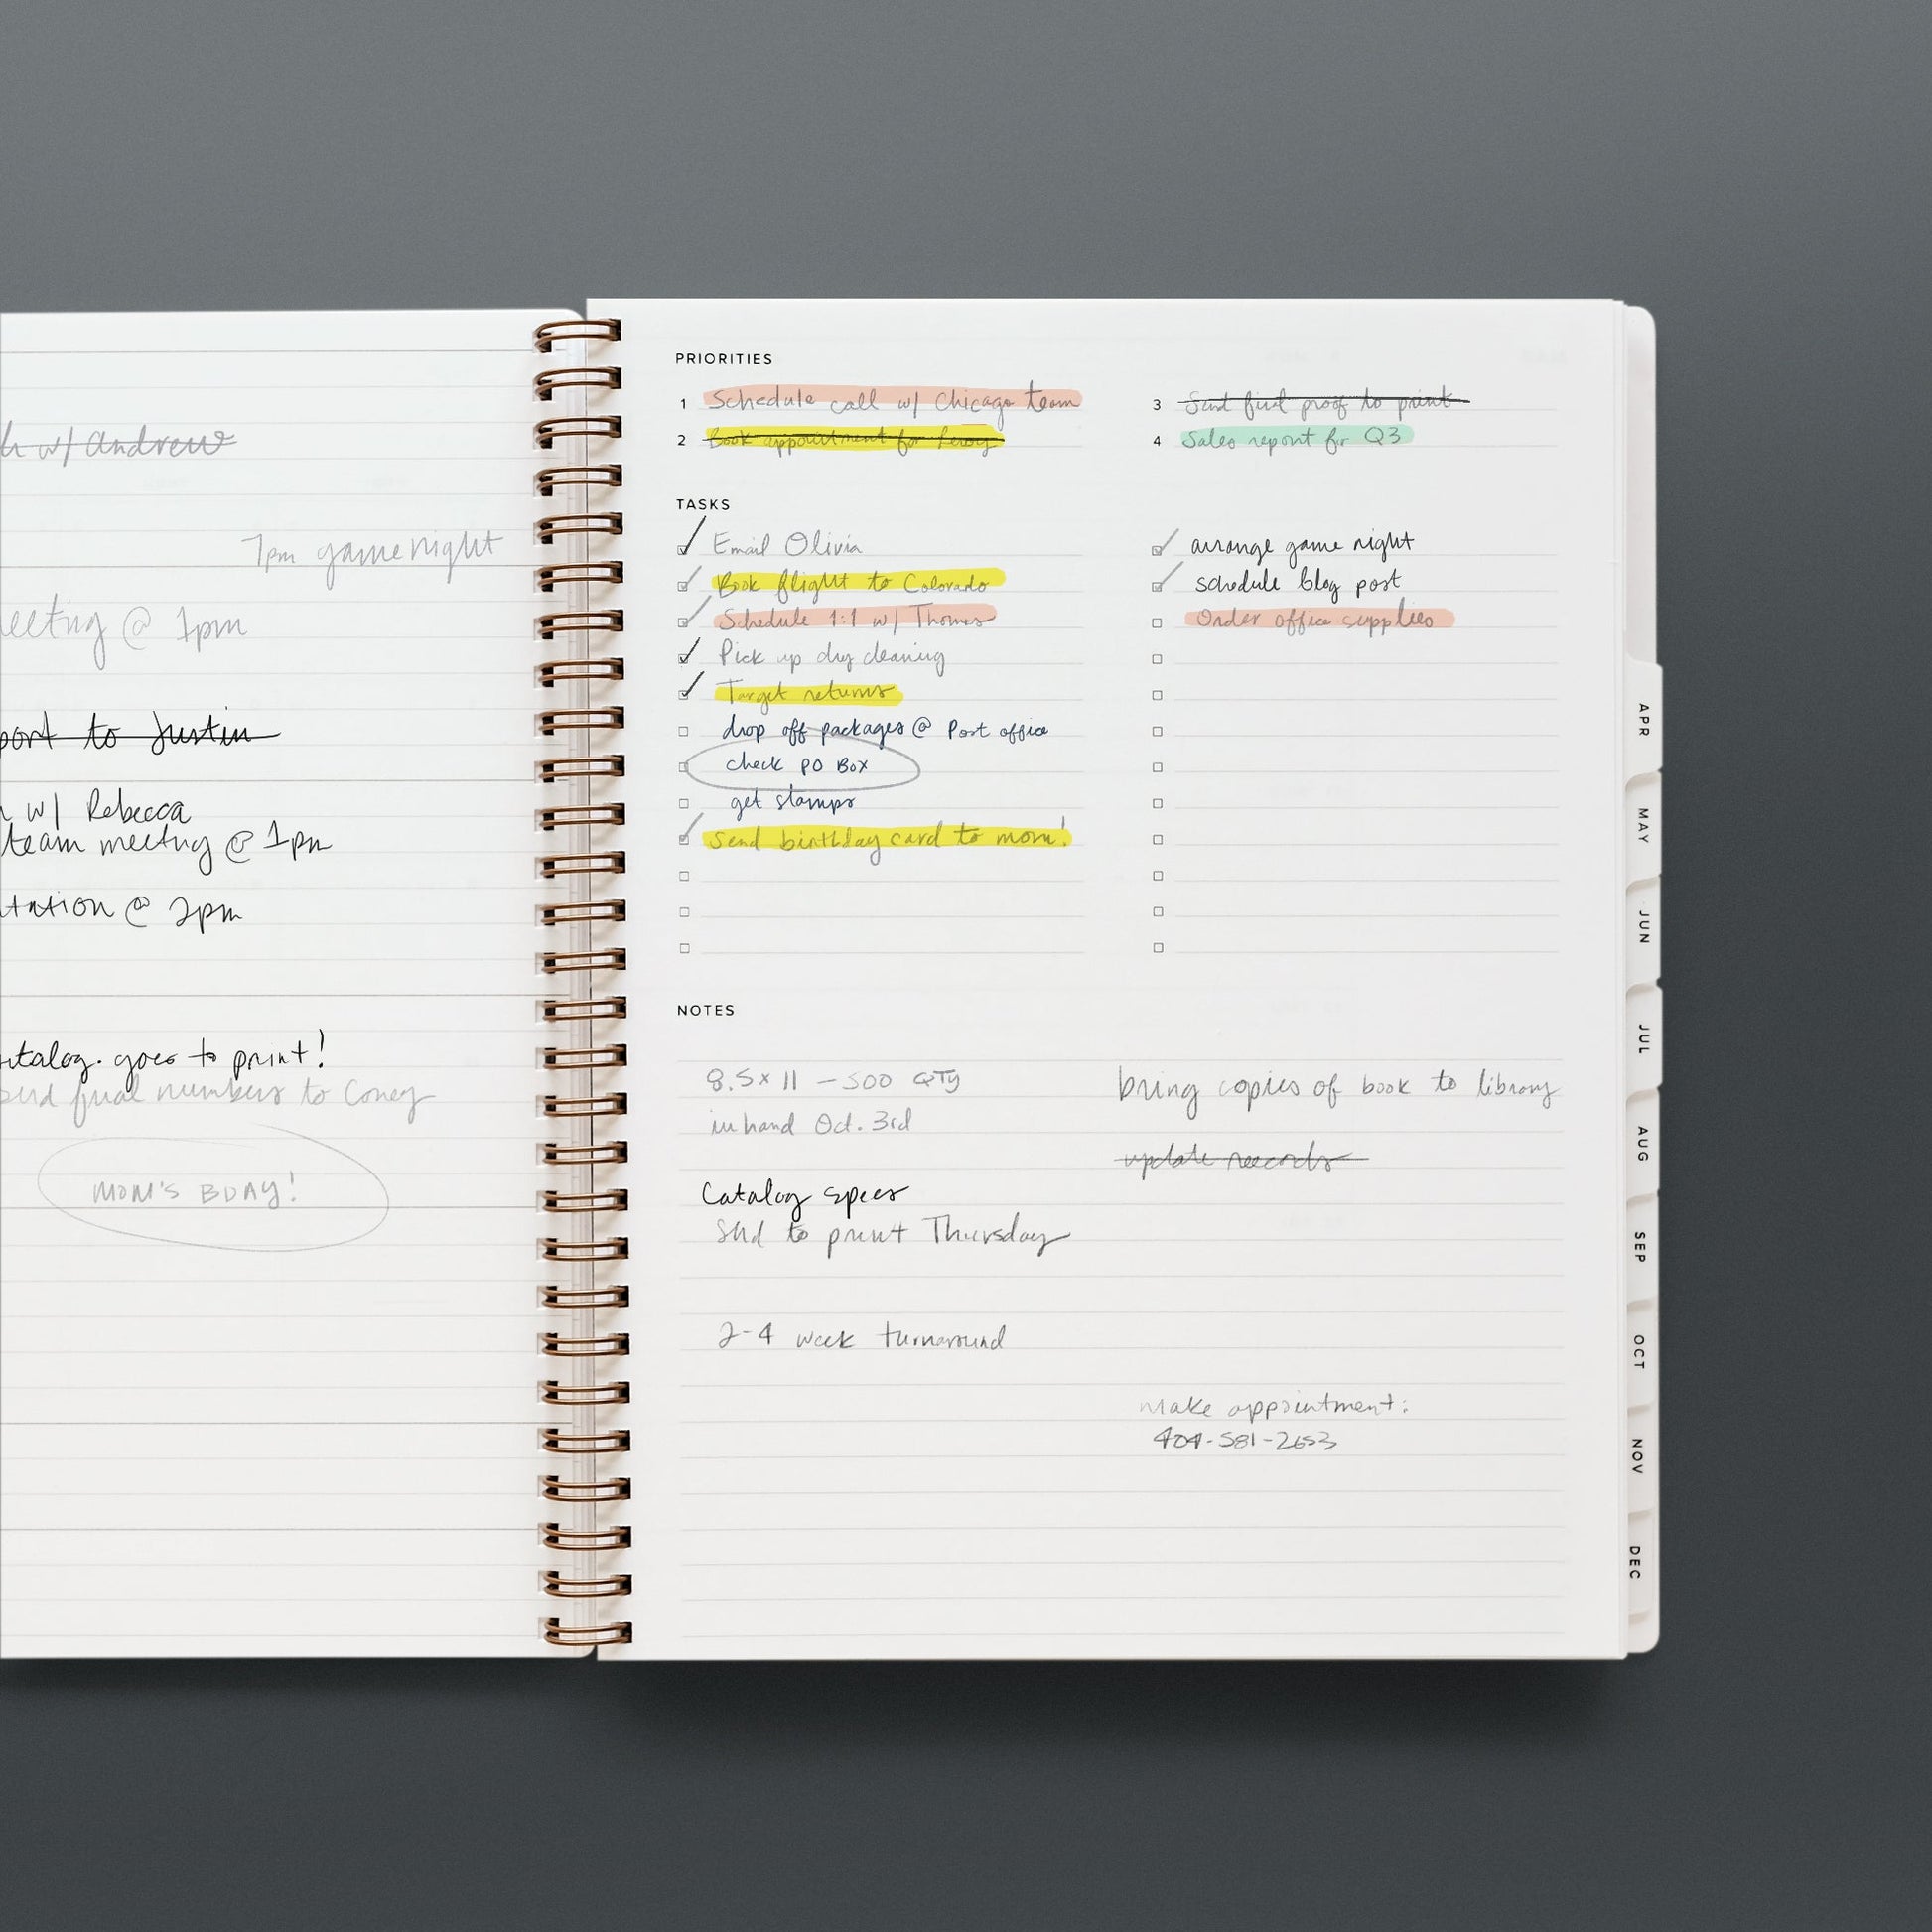 w/ Andrew
7pm game night
meeting @ 1pm
to Justin
w/ Rebecca
team meeting @ 1pm
@ 2pm
goes to print!
final numbers to
MOM'S BDAY!
PRIORITIES
1 Schedule call w/ Chicago team
2 Book appointment for
3 Send final proof to print
4 Sales report for Q3
TASKS
Email Olivia
Book flight to Colorado
Schedule 1:1 w/ Thomas
Pick up dry cleaning
Target returns
drop off packages @ Post office
check PO Box
get stamps
Send birthday card to mom!
arrange game night
schedule blog post
Order office supplies
NOTES
8.5 x 11 - 500 QTY
in hand Oct. 3rd
Catalog specs
Send to print Thursday
2-4 week turnaround
bring copies of book to library
update records
make appointment:
404-581-2653
APR
MAY
JUN
JUL
AUG
SEP
OCT
NOV
DEC